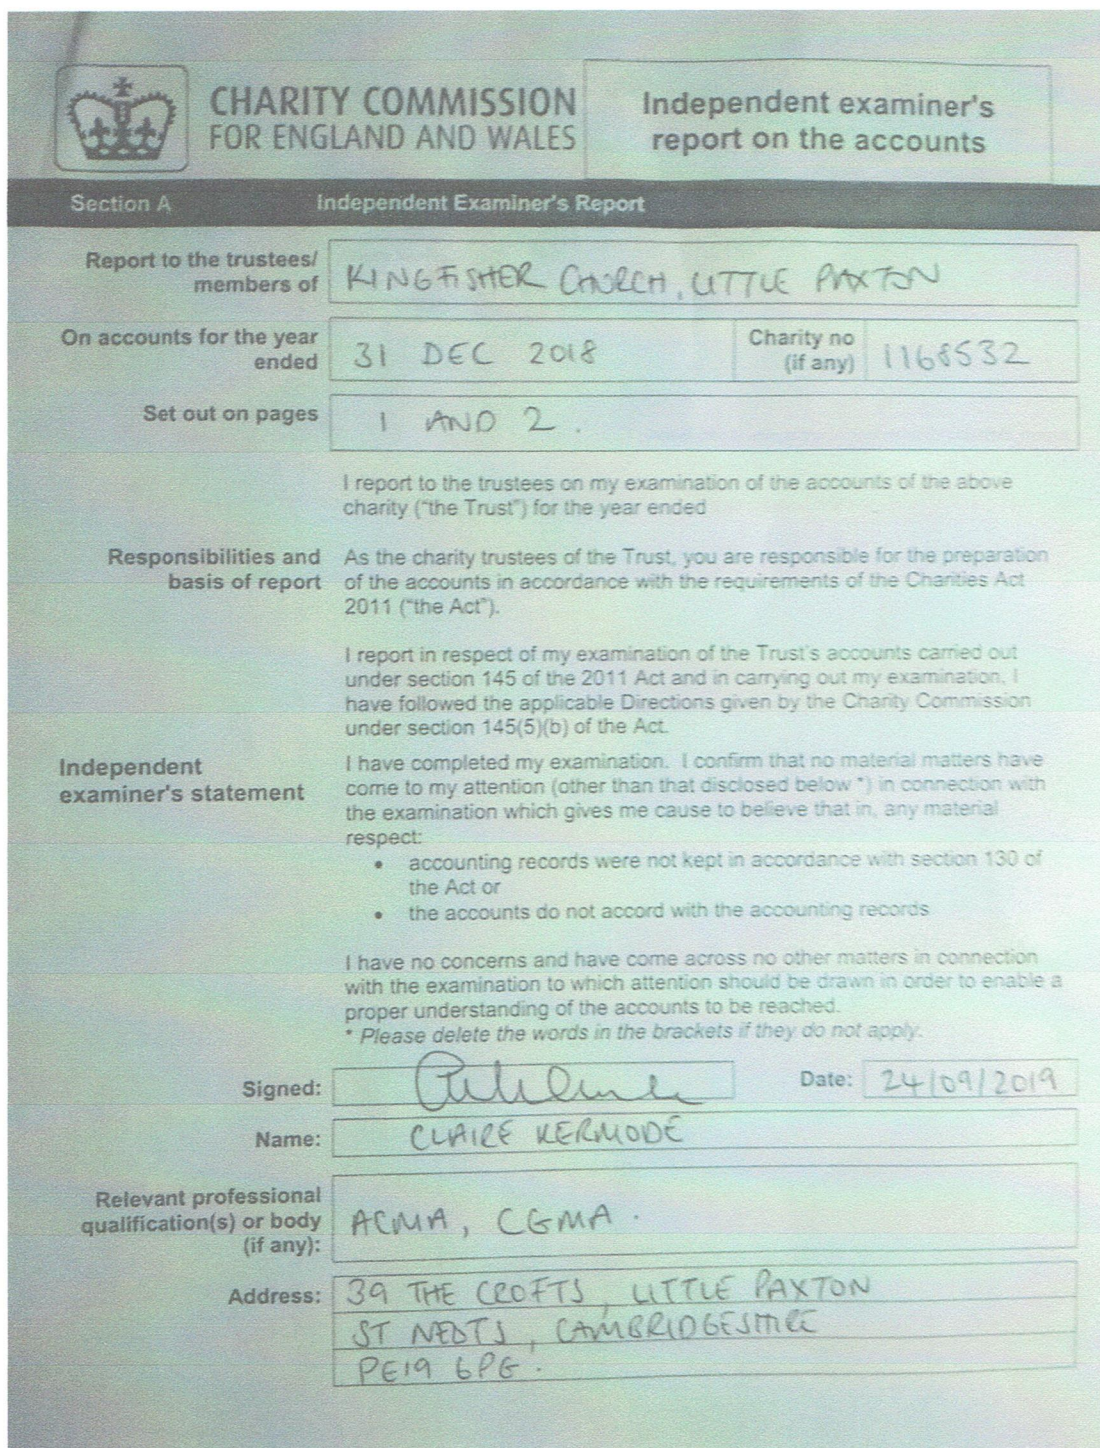 CHARITY COMMISSION
FOR ENGLAND AND WALES
Independent examiner's
report on the accounts
Section A Independent Examiner's Report
Report to the trustees/
members of
KINGFISHER CHURCH, LITTLE PAXTON
On accounts for the year
ended
31 DEC 2018
Charity no
(if any)
1168532
Set out on pages
1 AND 2.
I report to the trustees on my examination of the accounts of the above
charity ("the Trust") for the year ended
Responsibilities and
basis of report
As the charity trustees of the Trust, you are responsible for the preparation
of the accounts in accordance with the requirements of the Charities Act
2011 ("the Act").
I report in respect of my examination of the Trust's accounts carried out
under section 145 of the 2011 Act and in carrying out my examination, I
have followed the applicable Directions given by the Charity Commission
under section 145(5)(b) of the Act.
Independent
examiner's statement
I have completed my examination. I confirm that no material matters have
come to my attention (other than that disclosed below *) in connection with
the examination which gives me cause to believe that in, any material
respect:
• accounting records were not kept in accordance with section 130 of
the Act or
• the accounts do not accord with the accounting records
I have no concerns and have come across no other matters in connection
with the examination to which attention should be drawn in order to enable a
proper understanding of the accounts to be reached.
* Please delete the words in the brackets if they do not apply.
Signed:
Date: 24/09/2019
Name: CLAIRE KERMODE
Relevant professional
qualification(s) or body
(if any):
ACMA, CGMA.
Address: 39 THE CROFTS, LITTLE PAXTON
ST NEOTS, CAMBRIDGESHIRE
PE19 6PG.